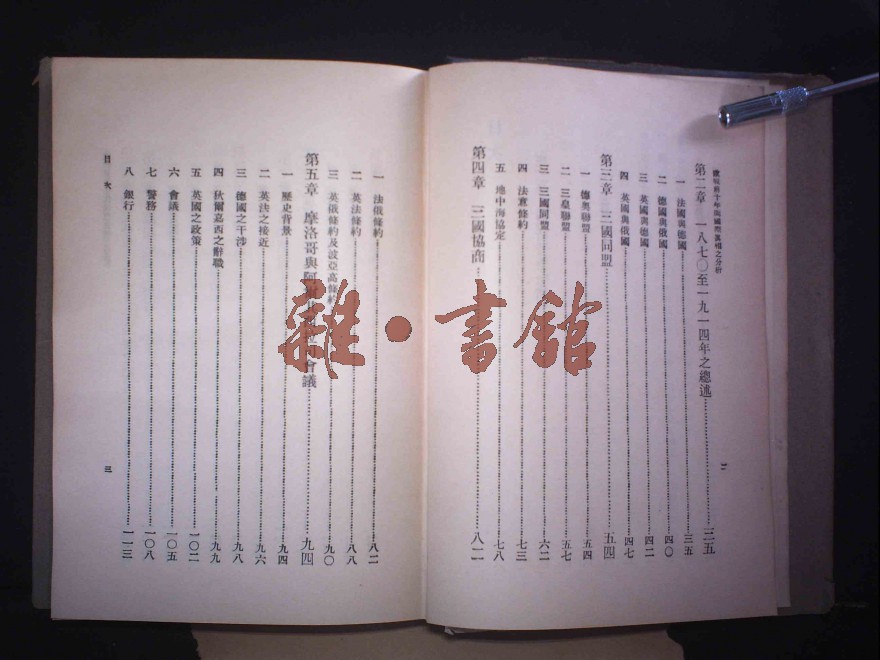 歐戰前十年間國際真相之分析
第二章 一八七〇至一九一四年之總述……三五
一 法國與德國……三五
二 德國與俄國……四〇
三 英國與德國……四二
四 英國與俄國……四七
第三章 三國同盟……五四
一 德奧聯盟……五四
二 三皇聯盟……五七
三 三國同盟……六二
四 法意條約……七三
五 地中海協定……七八
第四章 三國協商……八二
二
一 法俄條約……八二
二 英法條約……八八
三 英俄條約及波亞高條約……九〇
第五章 摩洛哥與阿 會議……九四
一 歷史背景……九四
二 英法之接近……九六
三 德國之干涉……九八
四 狄爾嘉西之辭職……九九
五 英國之政策……一〇二
六 會議……一〇五
七 警務……一〇八
八 銀行……一一三
目 次
三
雜·書館